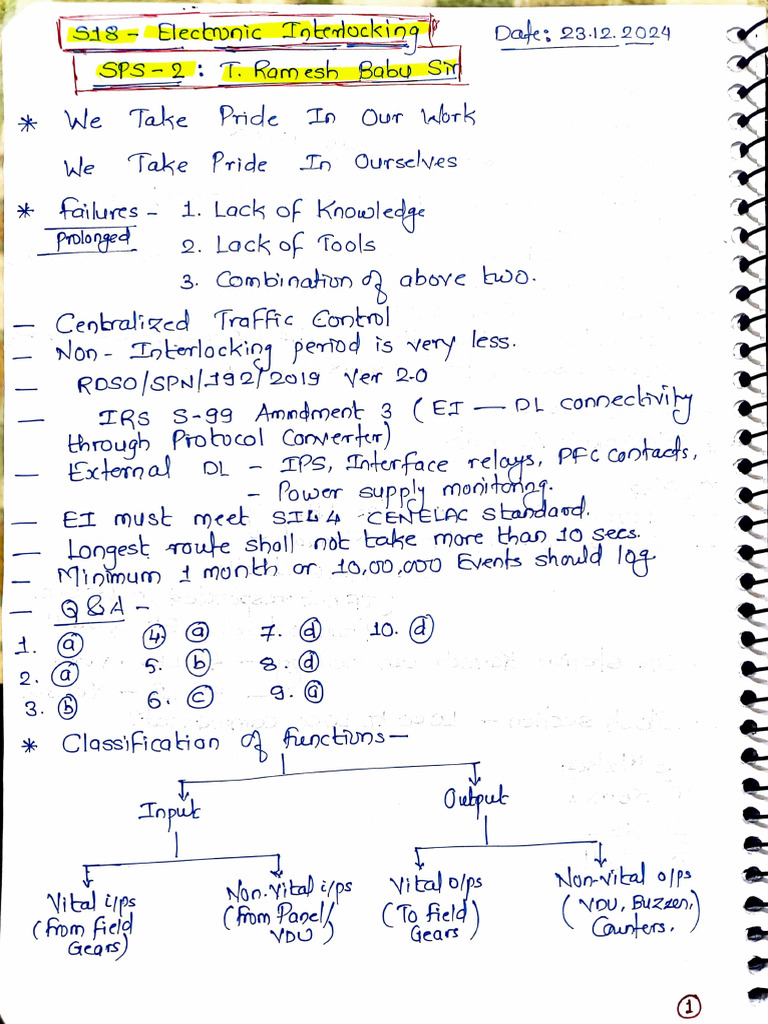 S18 - Electronic Interlocking
Date: 23.12.2024
SPS-2 : T. Ramesh Babu Sir
* We Take Pride In Our Work
We Take Pride In Ourselves
* Failures - 1. Lack of Knowledge
Prolonged
2. Lack of Tools
3. Combination of above two.
— Centralized Traffic Control
— Non-Interlocking period is very less.
— RDSO/SPN/192/2019 Ver 2.0
— IRS S-99 Amndment 3 (EI — DL connectivity
through Protocol Converter)
— External DL - IPS, Interface relays, PFC contacts,
- Power supply monitoring.
— EI must meet SIL4 CENELAC Standard.
— Longest route shall not take more than 10 secs.
— Minimum 1 month or 10,00,000 Events should log
— Q&A -
1. a 4. a 7. d 10. d
2. a 5. b 8. d
3. b 6. c 9. a
* Classification of functions —
Input Output
Vital i/ps Non-Vital i/ps Vital o/ps Non-Vital o/ps
(From Field (From Panel/ (To Field) (VDU, Buzzer,)
Gears) VDU) Gears Counters.
1